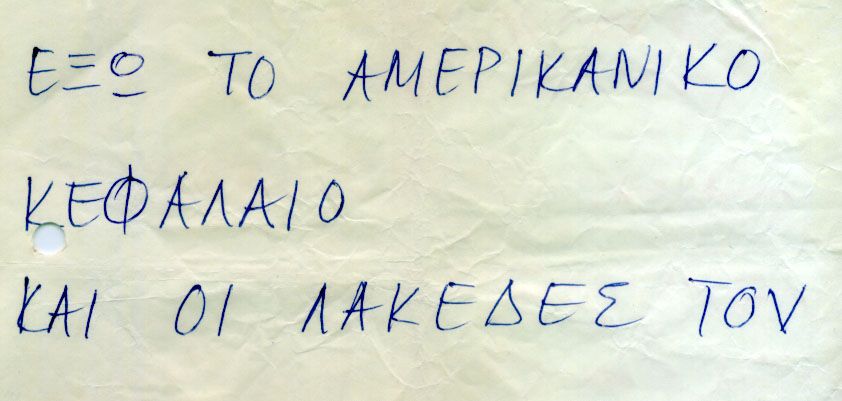 ΕΞΩ ΤΟ ΑΜΕΡΙΚΑΝΙΚΟ
ΚΕΦΑΛΑΙΟ
ΚΑΙ ΟΙ ΛΑΚΕΔΕΣ ΤΟΥ